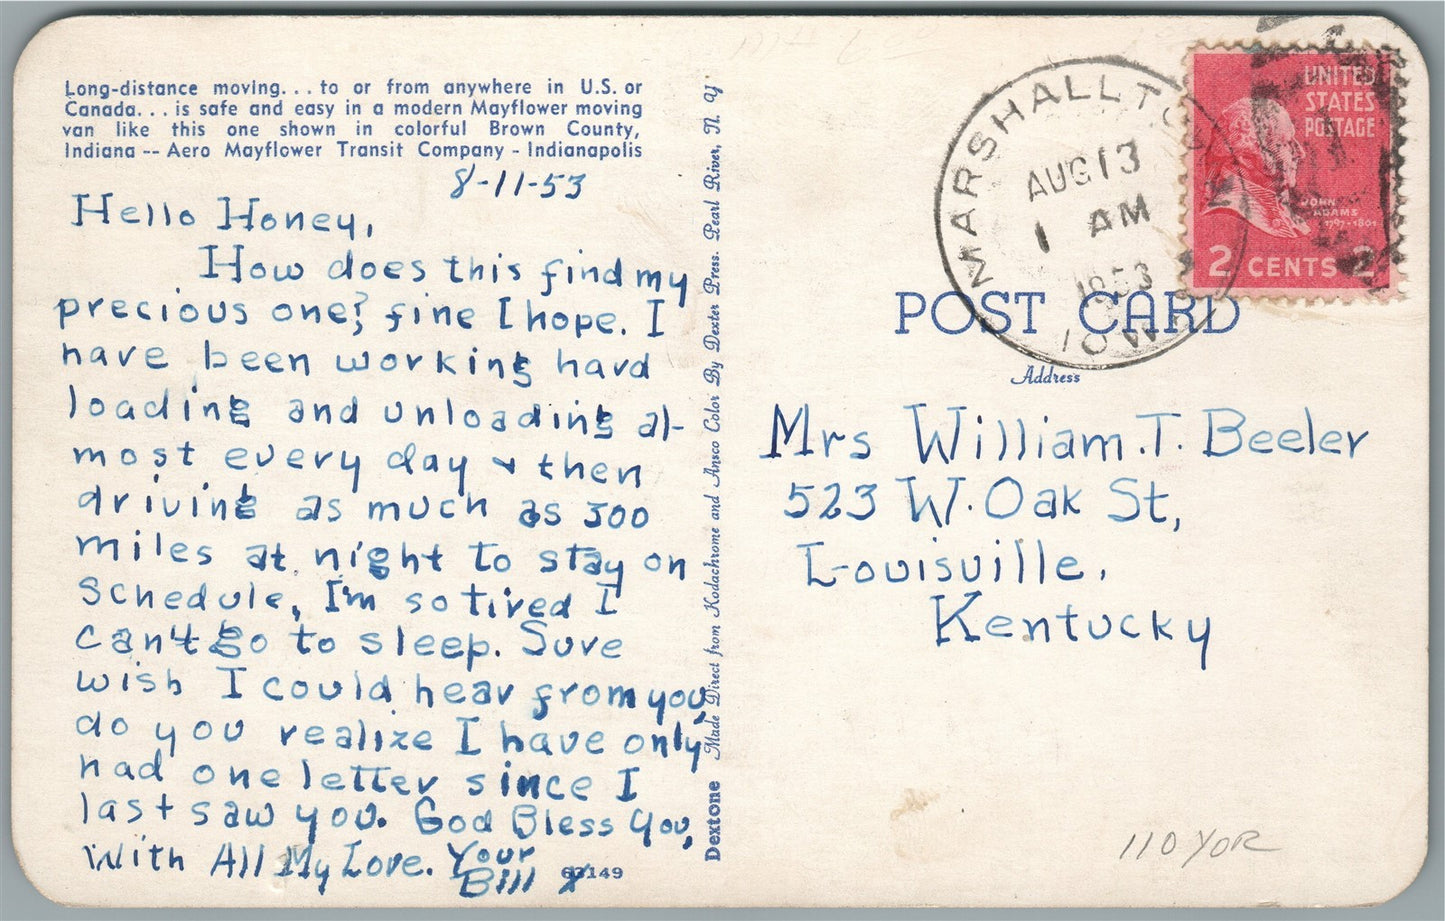 Long-distance moving... to or from anywhere in U.S. or
Canada... is safe and easy in a modern Mayflower moving
van like this one shown in colorful Brown County,
Indiana -- Aero Mayflower Transit Company - Indianapolis
8-11-53
Hello Honey,
How does this find my
precious one? fine I hope. I
have been working hard
loading and unloading al-
most every day & then
driving as much as 300
miles at night to stay on
schedule, I'm so tired I
can't go to sleep. Sure
wish I could hear from you,
do you realize I have only
had one letter since I
last saw you. God Bless You,
With All My Love. Your
Bill X
63149
Dextone Made Direct from Kodachrome and Ansco Color By Dexter Press. Pearl River, N. Y
MARSHALLTO
AUG 13
1 AM
1953
IOWA
UNITED
STATES
POSTAGE
JOHN
ADAMS
1797-1801
2 CENTS 2
POST CARD
Address
Mrs William. T. Beeler
523 W. Oak St,
Louisville,
Kentucky
110 YOR